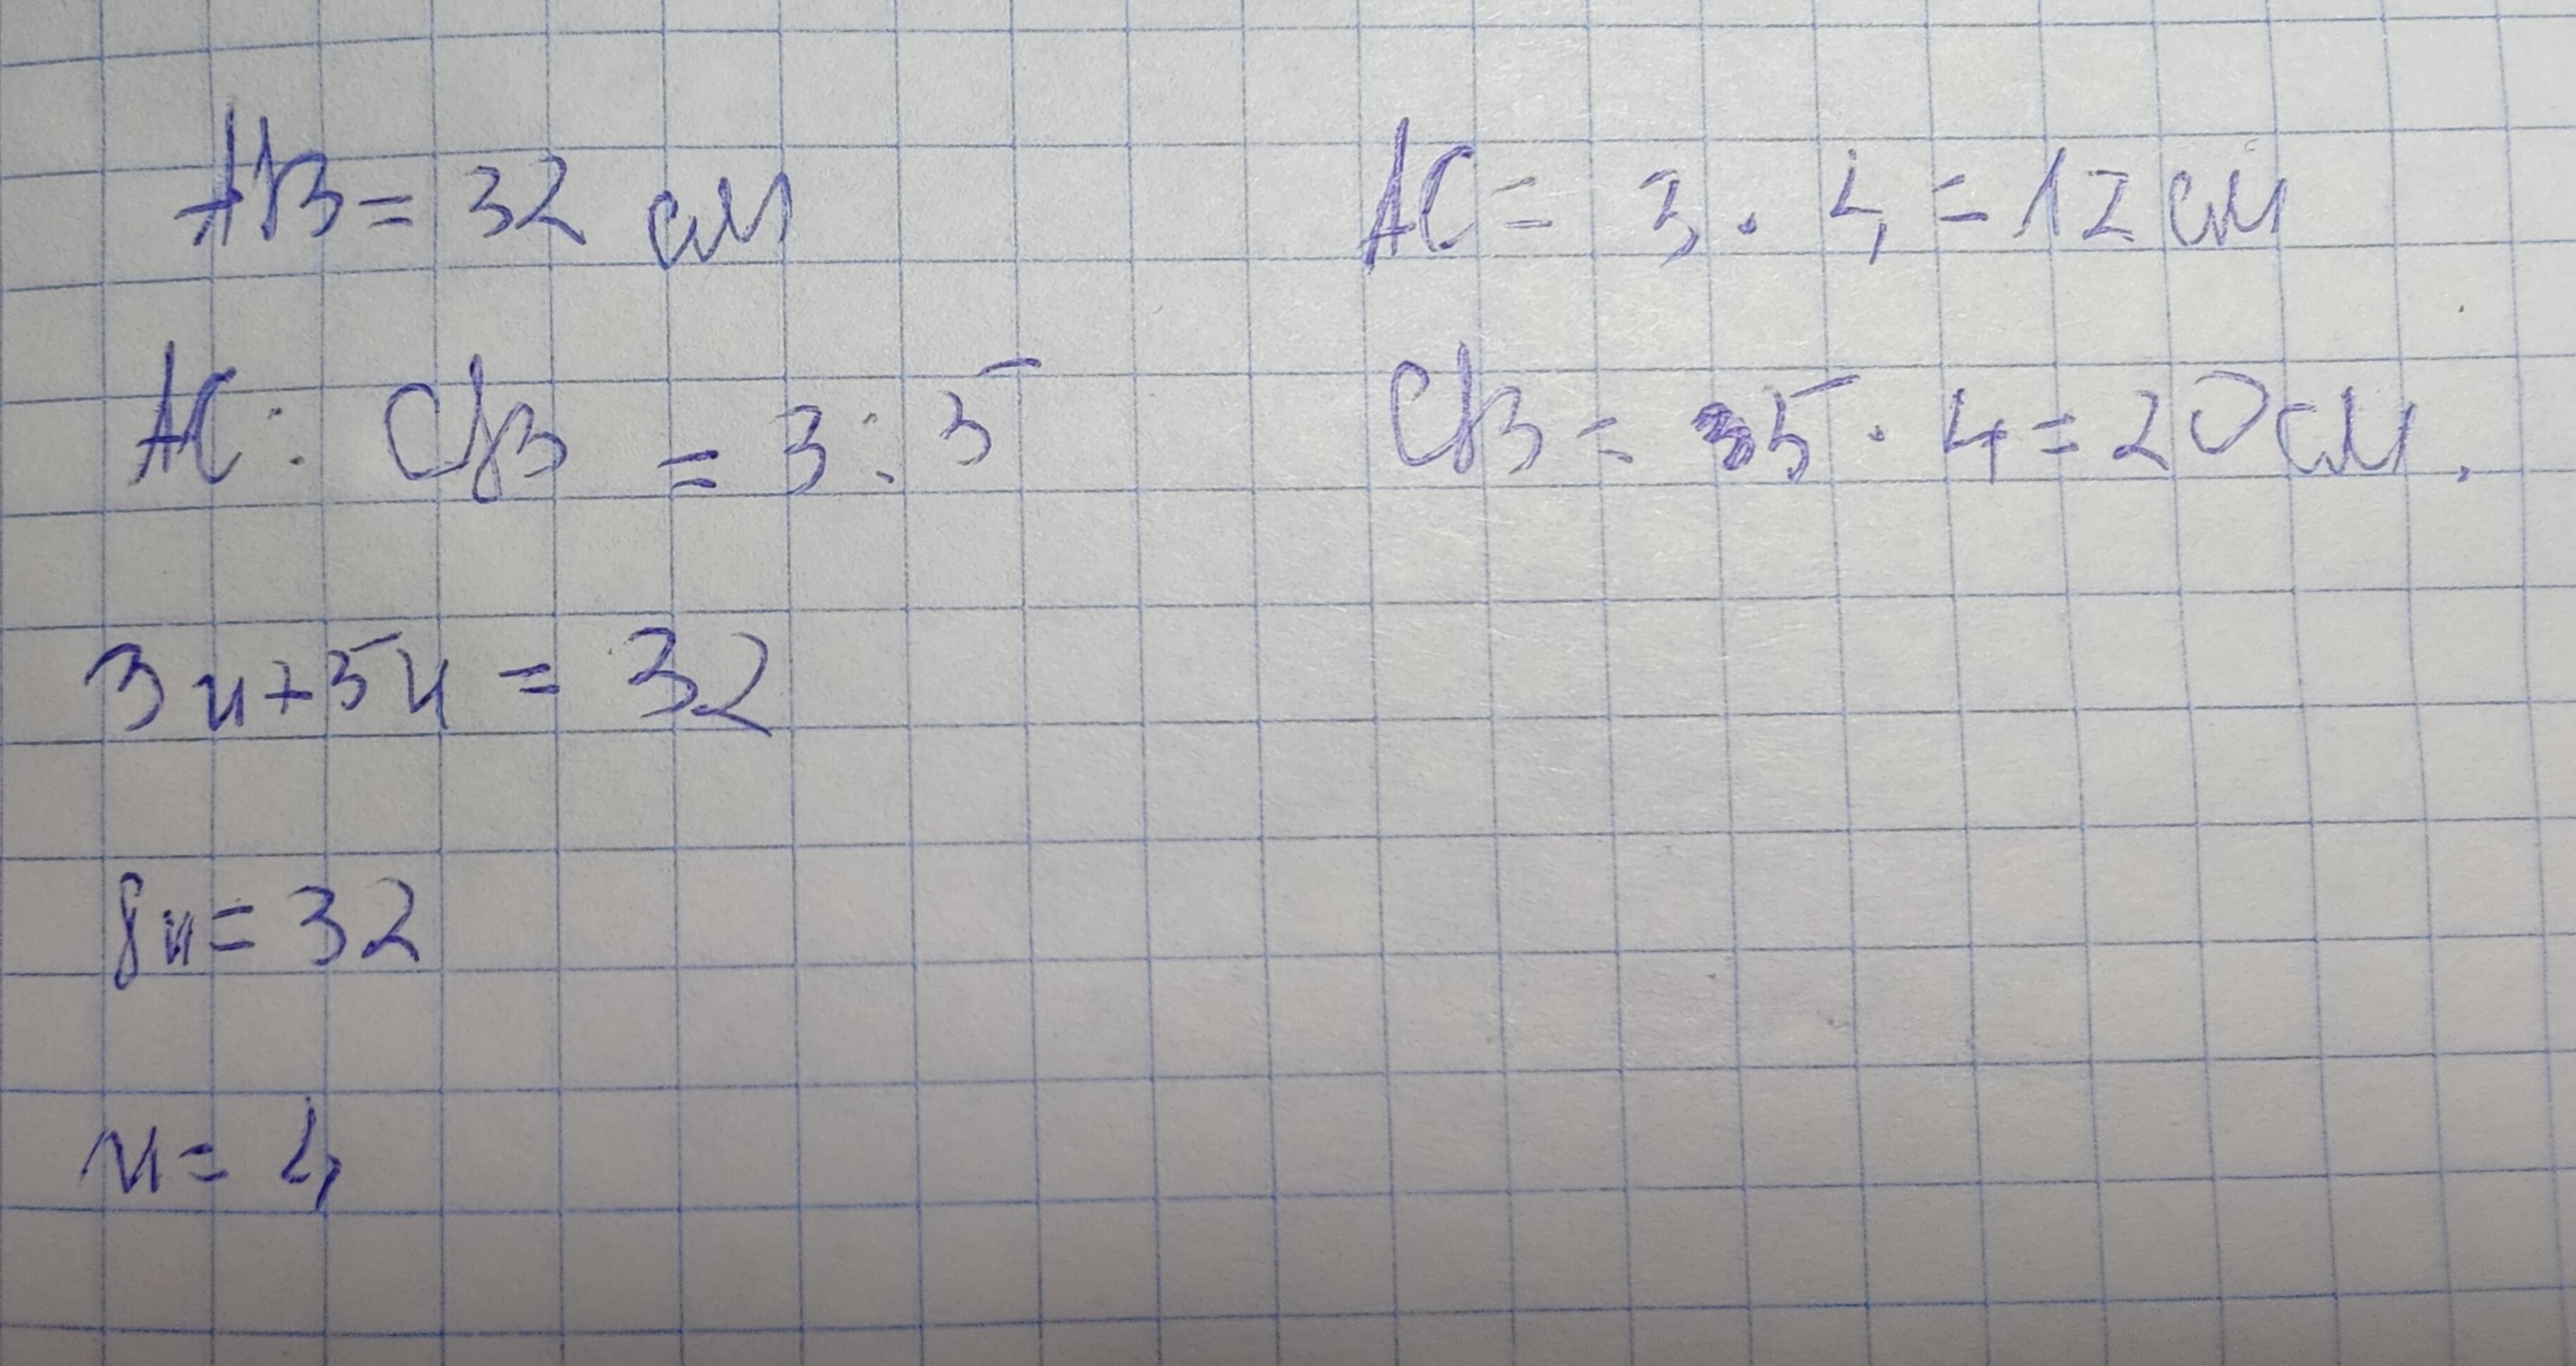 AB = 32 см
AC : CB = 3 : 5
3x + 5x = 32
8x = 32
x = 4
AC = 3 · 4 = 12 см
CB = 5 · 4 = 20 см.